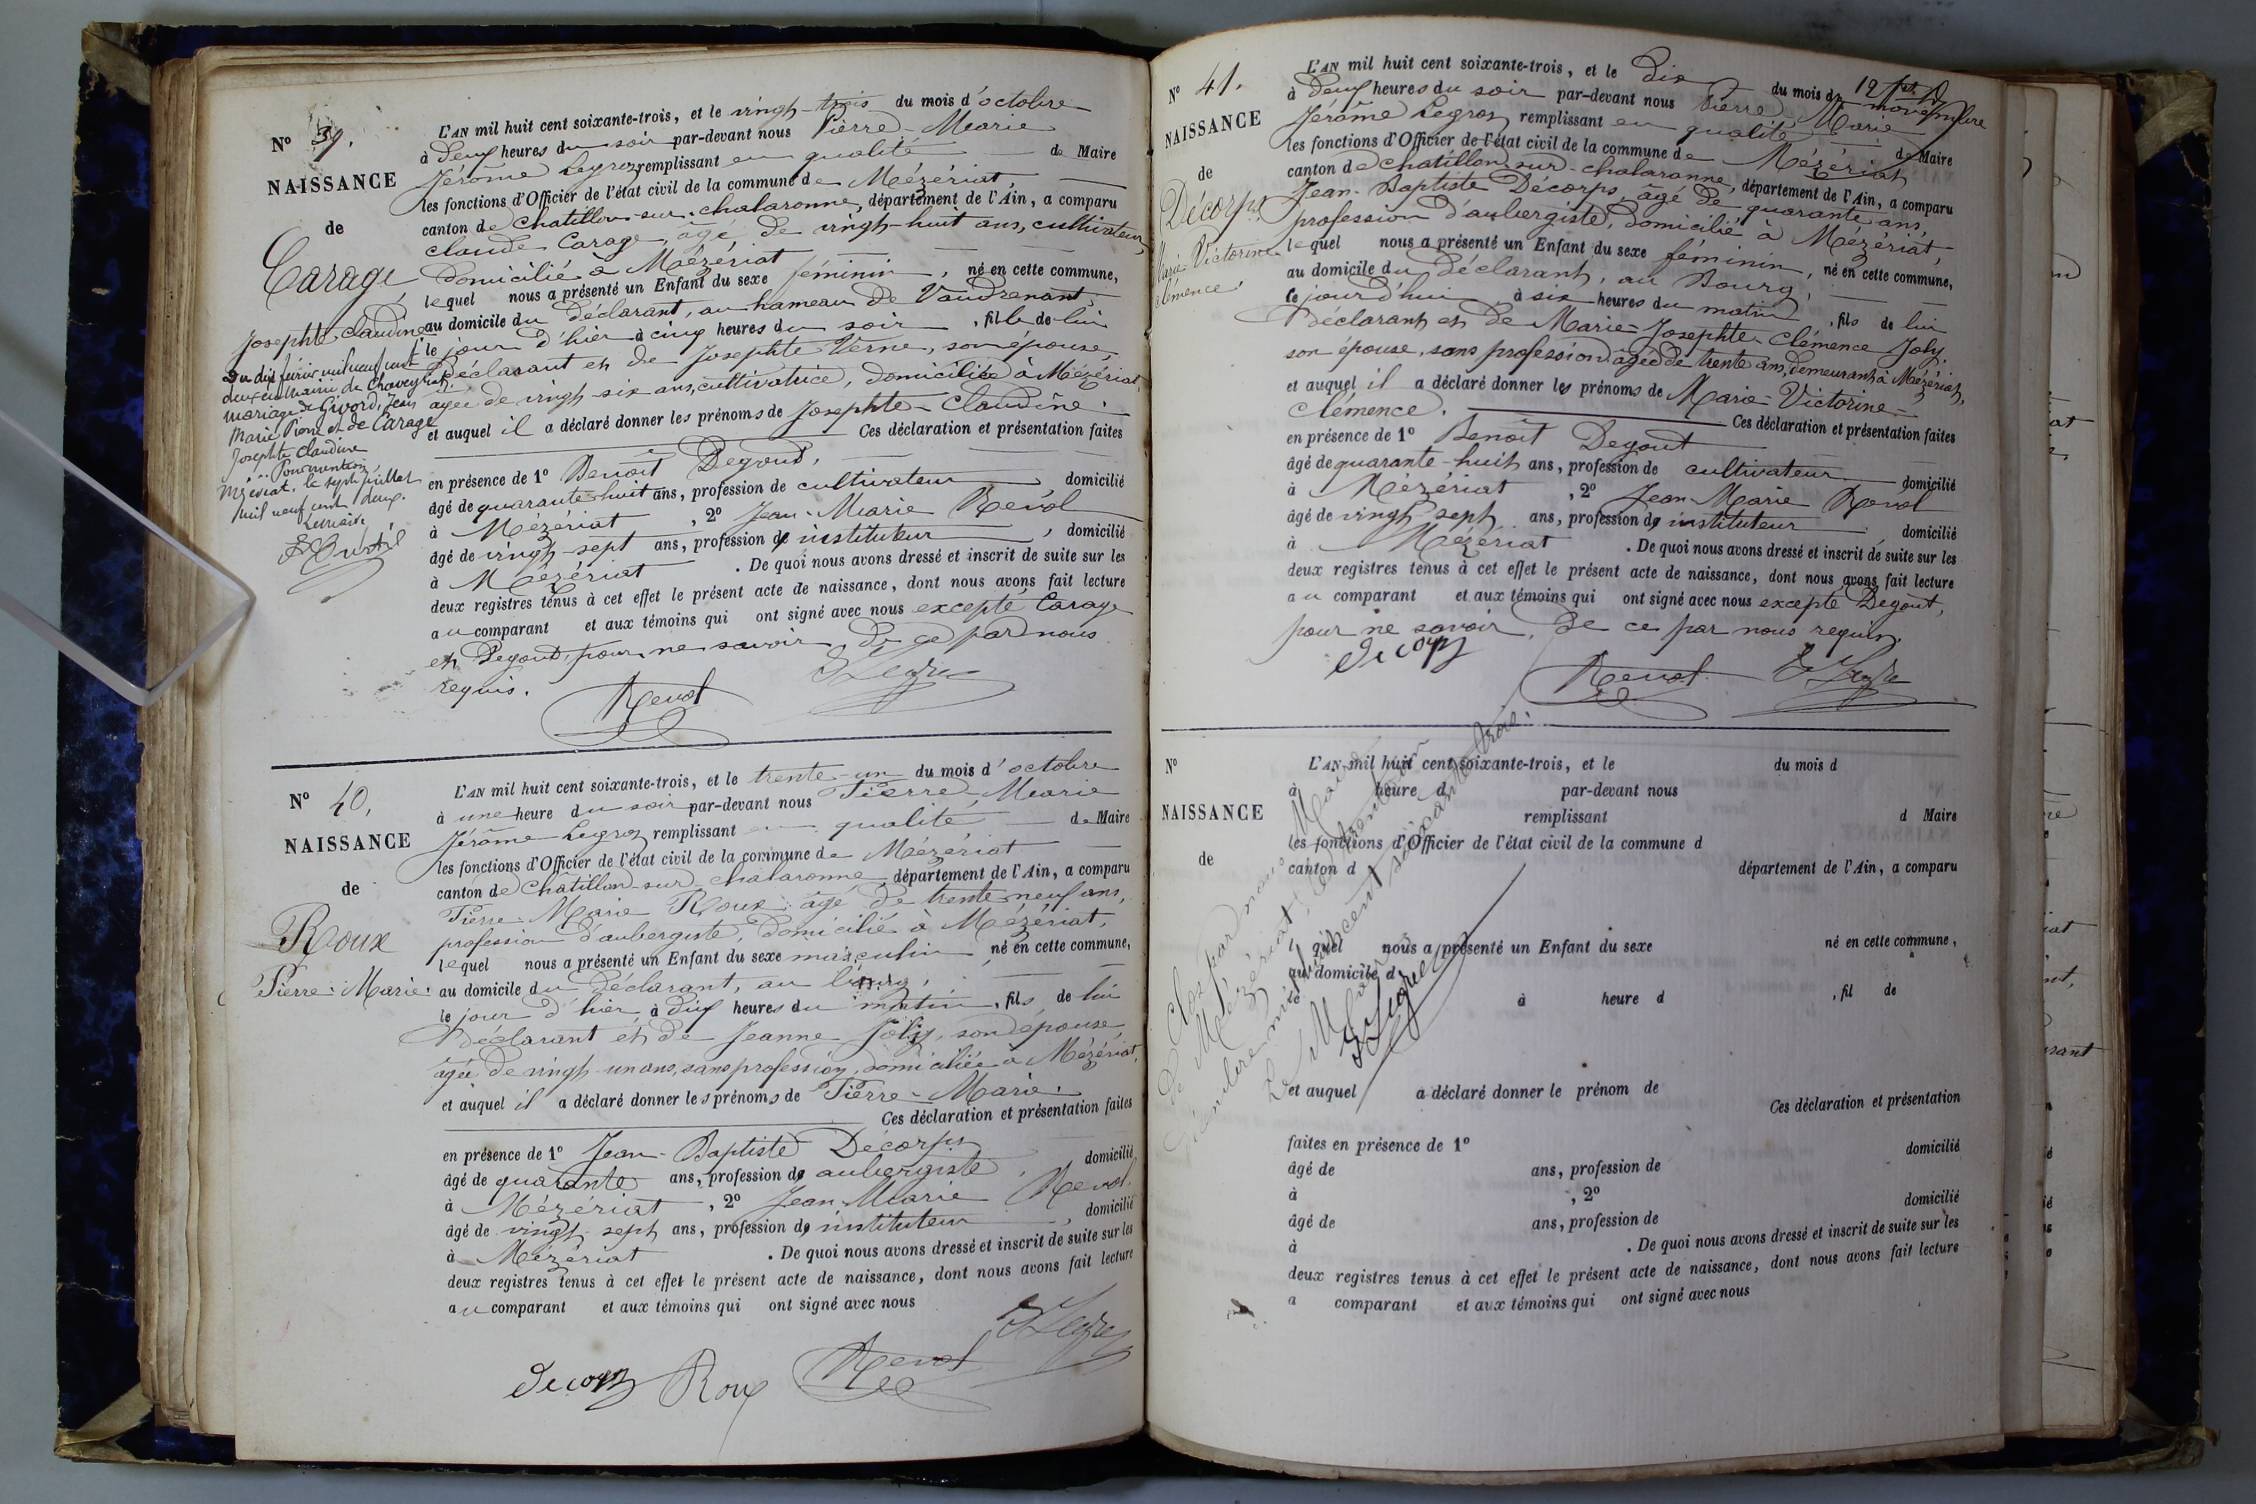 N° 39.
NAISSANCE
de
Carage
Josephte Claudine
Du dix février mil neuf cent
deux en mairie de Chaveyriat,
mariage de Givord, Jean
Marie Pierre et de Carage
Josephte Claudine
Pour mention
Mézériat, le sept juillet
mil neuf cent deux.
L'AN mil huit cent soixante-trois, et le vingt-trois du mois d'octobre
à deux heures du soir par-devant nous Pierre-Marie
Jérôme Legros remplissant en qualité de Maire
les fonctions d'Officier de l'état civil de la commune de Mézériat
canton de Chatillon-sur-chalaronne, département de l'Ain, a comparu
claude Carage, âgé de vingt-huit ans, cultivateur,
domicilié à Mézériat
lequel nous a présenté un Enfant du sexe féminin, né en cette commune,
au domicile du déclarant, au hameau de Vaudrenant,
le jour d'hier à cinq heures du soir, fille de lui
déclarant et de Josephte Verne, son épouse,
âgée de vingt-six ans, cultivatrice, domiciliée à Mézériat,
et auquel il a déclaré donner les prénoms de Josephte-Claudine.
Ces déclaration et présentation faites
en présence de 1° Benoît Degout,
âgé de quarante-huit ans, profession de cultivateur domicilié
à Mézériat, 2° Jean-Marie Revol
âgé de vingt-sept ans, profession d'instituteur, domicilié
à Mézériat. De quoi nous avons dressé et inscrit de suite sur les
deux registres tenus à cet effet le présent acte de naissance, dont nous avons fait lecture
au comparant et aux témoins qui ont signé avec nous excepté Carage
et Degout, pour ne savoir, de ce par nous
requis.
Revol
N° 40.
NAISSANCE
de
Roux
Pierre-Marie.
L'AN mil huit cent soixante-trois, et le trente-un du mois d'octobre
à une heure du soir par-devant nous Pierre-Marie
Jérôme Legros remplissant en qualité de Maire
les fonctions d'Officier de l'état civil de la commune de Mézériat
canton de Châtillon-sur-chalaronne, département de l'Ain, a comparu
Pierre-Marie Roux, âgé de trente-neuf ans,
profession d'aubergiste, domicilié à Mézériat,
lequel nous a présenté un Enfant du sexe masculin né en cette commune,
au domicile du déclarant, au bourg,
le jour d'hier, à dix heures du matin, fils de lui
déclarant et de Jeanne Joly, son épouse,
âgée de vingt-un ans, sans profession, domiciliée à Mézériat,
et auquel il a déclaré donner les prénoms de Pierre-Marie.
Ces déclaration et présentation faites
en présence de 1° Jean-Baptiste Décorps
âgé de quarante ans, profession d'aubergiste, domicilié
à Mézériat, 2° Jean-Marie Revol
âgé de vingt-sept ans, profession d'instituteur, domicilié
à Mézériat. De quoi nous avons dressé et inscrit de suite sur les
deux registres tenus à cet effet le présent acte de naissance, dont nous avons fait lecture
au comparant et aux témoins qui ont signé avec nous
Decorps Roux Revol
N° 41.
NAISSANCE
de
Décorps
Marie-Victorine
Clémence.
L'AN mil huit cent soixante-trois, et le dix du mois de novembre
à deux heures du soir par-devant nous Pierre-Marie
Jérôme Legros remplissant en qualité de Maire
les fonctions d'Officier de l'état civil de la commune de Mézériat
canton de chatillon-sur-chalaronne, département de l'Ain, a comparu
Jean-Baptiste Décorps, âgé de quarante ans,
profession d'aubergiste, domicilié à Mézériat,
lequel nous a présenté un Enfant du sexe féminin, né en cette commune,
au domicile du déclarant, au Bourg,
le jourd'hui, à six heures du matin, fils de lui
déclarant et de Marie-Josephte-Clémence Joly,
son épouse, sans profession âgée de trente ans, demeurant à Mézériat,
et auquel il a déclaré donner les prénoms de Marie-Victorine-
Clémence. Ces déclaration et présentation faites
en présence de 1° Benoît Degout
âgé de quarante-huit ans, profession de cultivateur domicilié
à Mézériat, 2° Jean-Marie Revol
âgé de vingt-sept ans, profession d'instituteur domicilié
à Mézériat. De quoi nous avons dressé et inscrit de suite sur les
deux registres tenus à cet effet le présent acte de naissance, dont nous avons fait lecture
au comparant et aux témoins qui ont signé avec nous excepté Degout,
pour ne savoir, de ce par nous requis.
Decorps
Revol
N°
NAISSANCE
de
L'AN mil huit cent soixante-trois, et le du mois d
à heure d par-devant nous
remplissant d Maire
les fonctions d'Officier de l'état civil de la commune d
canton d département de l'Ain, a comparu
l quel nous a présenté un Enfant du sexe né en cette commune,
au domicile d
le à heure d, fil de
et auquel a déclaré donner le prénom de
Ces déclaration et présentation
faites en présence de 1°
âgé de ans, profession de domicilié
à, 2°
âgé de ans, profession de domicilié
à. De quoi nous avons dressé et inscrit de suite sur les
deux registres tenus à cet effet le présent acte de naissance, dont nous avons fait lecture
a comparant et aux témoins qui ont signé avec nous
Clos par nous Maire
de Mézériat, ce trente un
décembre mil huit cent soixante trois.
Le Maire